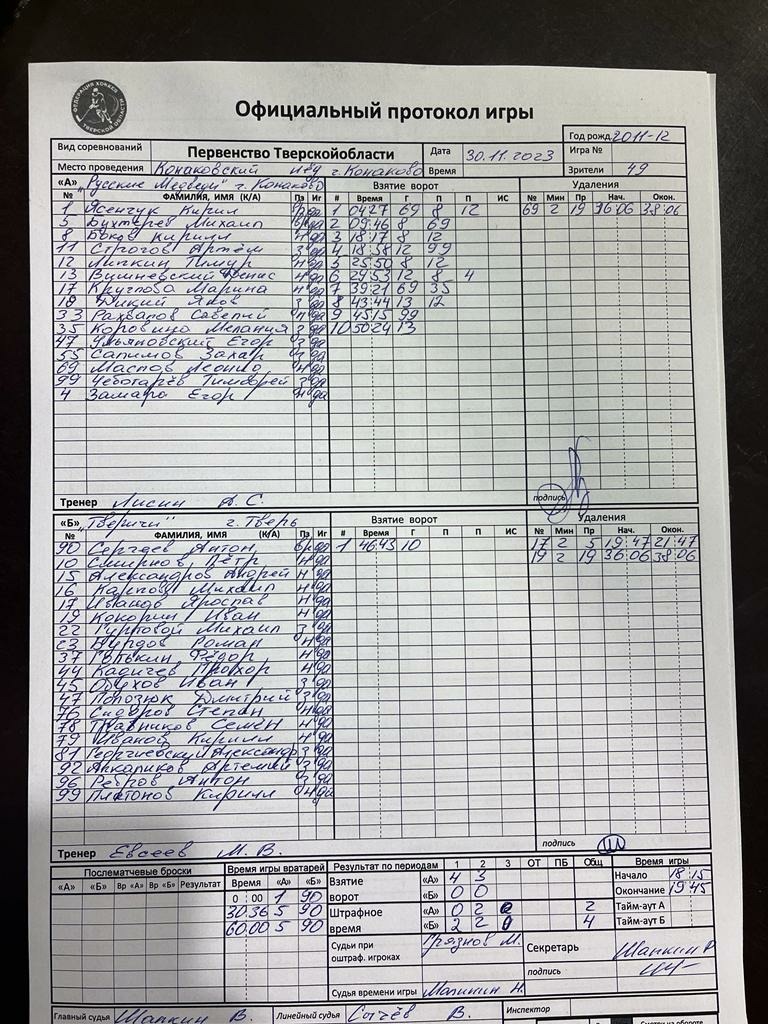 ФЕДЕРАЦИЯ ХОККЕЯ ТВЕРСКОЙ ОБЛАСТИ
Официальный протокол игры
Год рожд. 2011-12
Вид соревнований Первенство Тверскойобласти Дата 30.11.2023 Игра №
Место проведения Конаковский г. Конаково Время Зрители 49
«А» "Русские Медведи" г. Конаково Взятие ворот Удаления
№ ФАМИЛИЯ, ИМЯ (К/А) Пз Иг # Время Г П П ИС № Мин Пр Нач. Окон.
1 Ясенчук Кирил да 1 04:27 69 8 12 69 2 19 36:06 38:06
5 Бухтарев Михаил да 2 09:46 8 69
8 Боков Кирилл да 3 18:17 8 12
11 Строгов Артём з да 4 18:58 12 99
12 Липкин Тимур н да 5 25:50 8 12
13 Вишневский Денис н да 6 29:53 12 8 4
17 Круглова Марина н да 7 39:21 69 35
18 Дикий Яков з да 8 43:44 13 12
33 Рахвалов Савелий н да 9 45:15 99
35 Коровина Мелания з да 10 50:24 13
47 Ульяновский Егор з да
55 Салимов Захар з да
69 Маслов Леонид н да
99 Чеботарёв Тимофей з да
4 Замара Егор н да
Тренер Лисин А.С. подпись
«Б» "Тверичи" г. Тверь Взятие ворот Удаления
№ ФАМИЛИЯ, ИМЯ (К/А) Пз Иг # Время Г П П ИС № Мин Пр Нач. Окон.
90 Сергеев Антон Вр да 1 46:43 10 17 2 5 19:47 21:47
10 Смирнов Пётр н да 19 2 19 36:06 38:06
15 Александров Андрей н да
16 Карпов Михаил н да
17 Иванов Ярослав н да
19 Кокорин Иван н да
22 Михаил з да
23 Бурдов Роман н да
37 Галькин Фёдор н да
44 Кадичев Прохор н да
45 Обухов Иван з да
47 Дмитрий з да
76 Сидоров Степан н да
78 Семён н да
79 Иванов Кирилл н да
81 Георгиевский Александр з да
92 Артемий з да
96 Ребров Антон з да
99 Платонов Кирилл н да
Тренер Евсеев М.В. подпись
Послематчевые броски Время игры вратарей Результат по периодам 1 2 3 ОТ ПБ Общ Время игры
«А» «Б» Вр «А» Вр «Б» Результат Время «А» «Б» Взятие ворот «А» 4 3 Начало 18 15
0 00 1 90 «Б» 0 0 Окончание 19 45
30 36 5 90 Штрафное время «А» 0 2 0 2 Тайм-аут А
60 00 5 90 «Б» 2 2 0 4 Тайм-аут Б
Судьи при оштраф. игроках Грязнов М. Секретарь Шапкин Р
подпись
Судья времени игры Малинин Н.
Главный судья Шапкин В. Линейный судья Сычёв В. Инспектор
Смотри на обороте